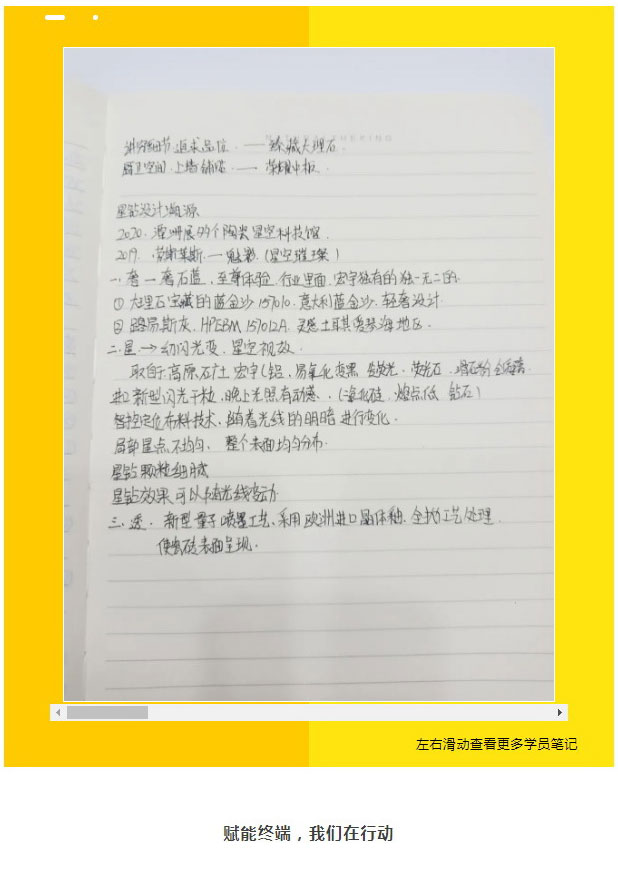 讲究细节 追求品位 —— 臻藏大理石.
空间 上墙铺贴 —— 荣耀中板.
星钻设计溯源
2020. 潭洲展99个陶瓷星空科技馆.
2019. 劳斯莱斯 — 魅影 (星空璀璨)
一. 奢 — 奢石蓝, 至尊体验. 行业里面, 宏宇独有的独一无二的.
① 大理石宝藏的蓝金沙 157010. 意大利蓝金沙. 轻奢设计
② 路易斯灰. HPEBM 157012A. 灵感土耳其爱琴海地区.
二. 星 → 幻闪光变. 星空视效.
取自: 高原石、土 宏宇(铝, 易氧化变黑 荧光石.
新型闪光干粒, 晚上光照有动感. (氧化硅. 熔点低 钻石)
智控定位布料技术, 随着光线的明暗进行变化.
局部星点不均匀、整个表面均匀分布.
星钻颗粒细腻
星钻效果可以随光线变动
三. 透. 新型量子喷墨工艺, 采用欧洲进口晶体釉. 全抛工艺处理.
使瓷砖表面呈现.
左右滑动查看更多学员笔记
赋能终端，我们在行动